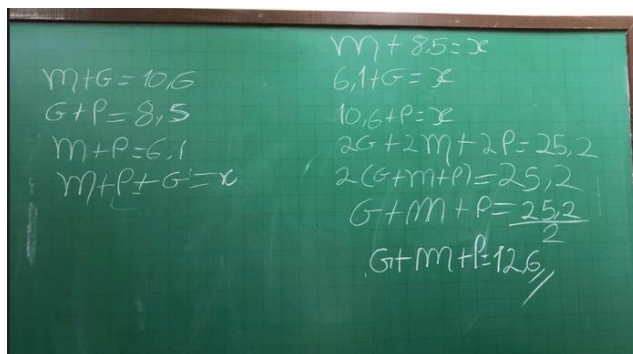 m+G=10,6
G+P=8,5
m+P=6,1
m+P+G=x
m+8,5=x
6,1+G=x
10,6+P=x
2G+2m+2P=25,2
2(G+m+P)=25,2
G+m+P=25,2
2
G+m+P=12,6//